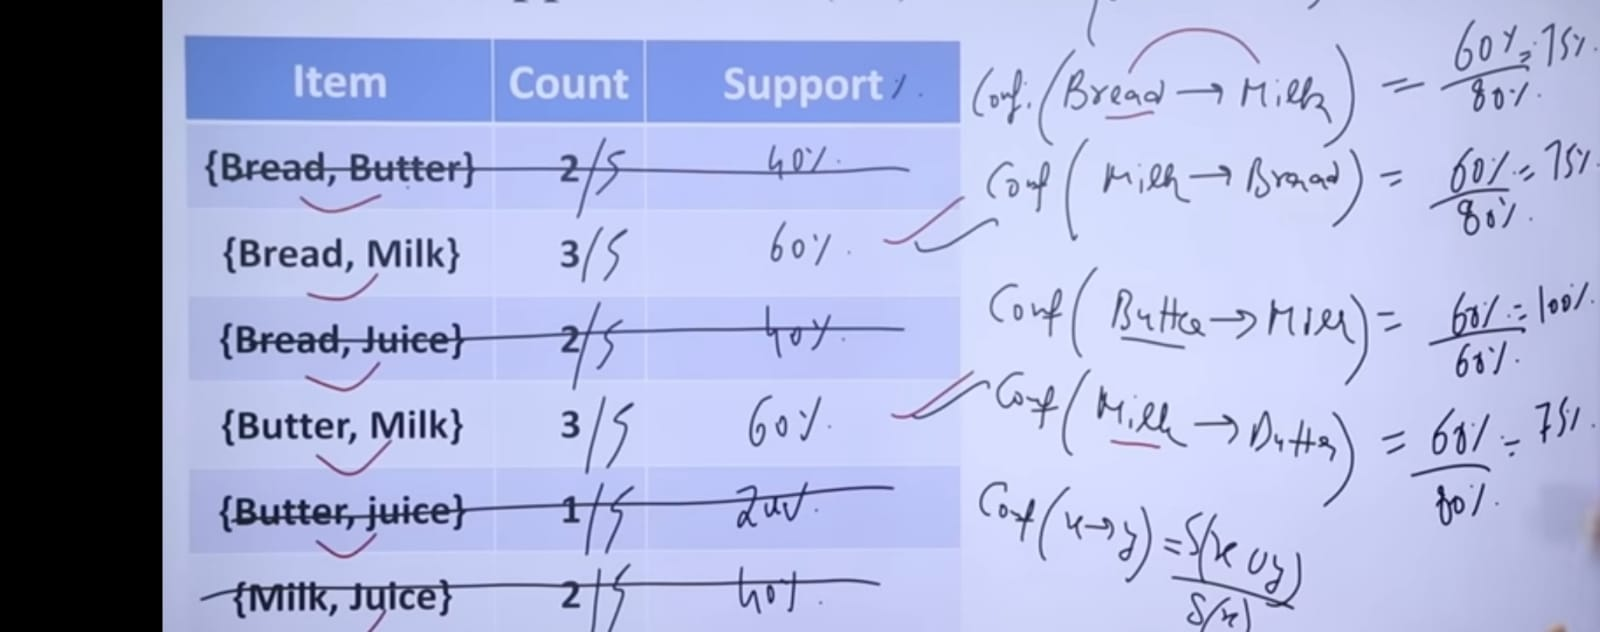 Item Count Support %.
{Bread, Butter} 2/5 40%.
{Bread, Milk} 3/5 60%.
{Bread, Juice} 2/5 40%.
{Butter, Milk} 3/5 60%.
{Butter, juice} 1/5 20%.
{Milk, Juice} 2/5 40%.
Conf. (Bread → Milk) = 60% / 80%. = 75%.
Conf (Milk → Bread) = 60% / 80%. = 75%
Conf (Butter → Milk) = 60% / 60%. = 100%.
Conf (Milk → Butter) = 60% / 80%. = 75%.
Conf (x→y) = S(x ∪ y) / S(x)